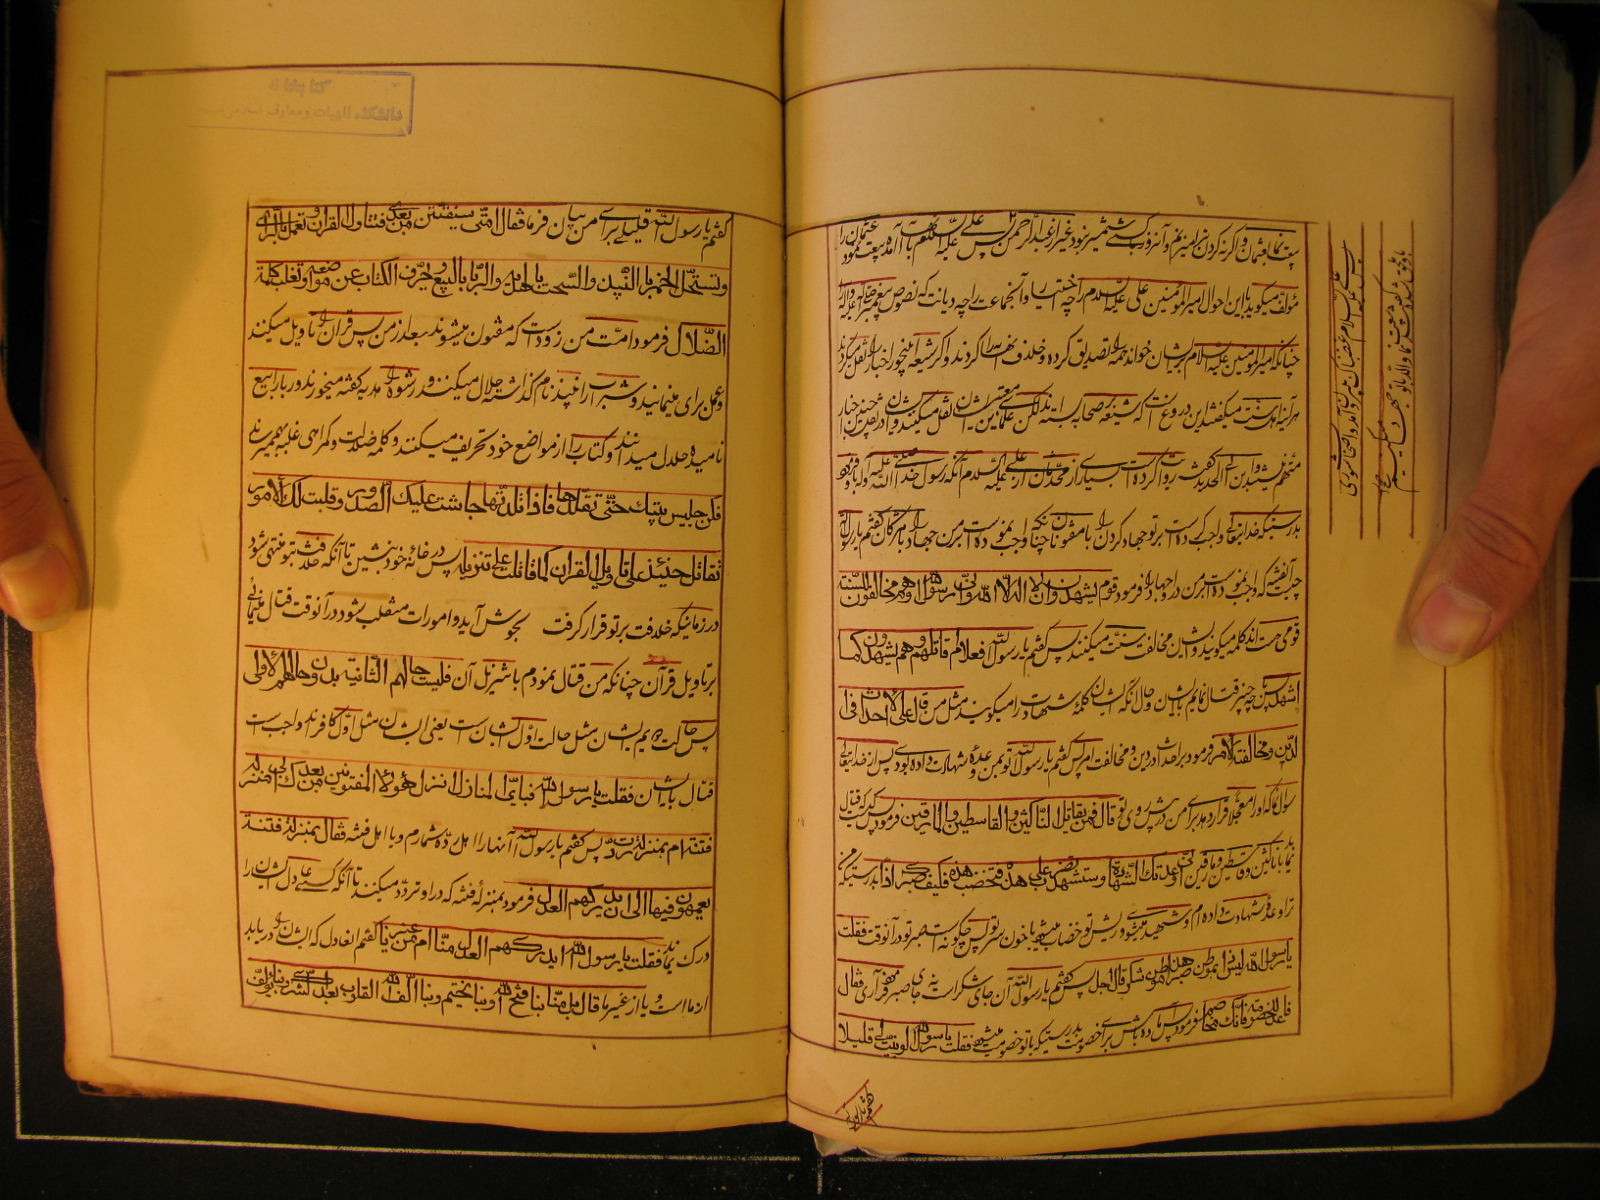 بیعت نما بعثمان و اگر نه گردن ترا میزنم و آنروز با کسی شمشیر نبود غیر از عبدالرحمن پس علی علیه السلم بآنها آمده بیعت نمود عثمان را
مؤلف میگوید با این احوال امیرالمؤمنین علی علیه السلام را چه اختیار و آنجماعت را چه دیانت که نصوص پیغمبر صلی الله علیه و اله را
چنانکه امیرالمؤمنین علیه السلام بریشان خوانده همه تصدیق کرده و خلاف آنها را کردند و اگر شیعه اینجور اخبار را نقل میکردند
هر آینه اهل سنت میگفتند این دروغست که شیعه بصحابه بسته اند لکن علمای معتبرین ایشان نقل میکنند و ایشان را در نقل چنین اخبار
متهم نمیشود ابن ابی الحدید گفت روایت کرده است بسیاری از محدثان از علی علیه السلام آنکه رسول خدا صلی الله علیه و اله باو فرمود
بدرستیکه خدایتعالی واجب کرده است بر تو جهاد کردن را با مفتونان چنانکه واجب نموده است بر من جهاد را با مشرکان گفتم یا رسول الله
چیست آنفتنه که واجب کرده است بر من در او جهاد را فرمود قوم یشهدون ان لا اله الا الله و انی رسول الله و هم مخالفون للسنة
قومی هست اند کلمه میگویند و ایشان مخالفت سنت میکنند پس گفتم یا رسول الله فعلام اقاتلهم و هم یشهدون کما
اشهد پس بر چه چیز قتال نمایم بایشان و حال آنکه ایشان کلمهٔ شهادت را میگویند مثل من قال علی الاحداث فی
الدین و مخالفة الامر فرمود بر احداث در دین و مخالفت امر پس گفتم یا رسول الله تو بمن وعدهٔ شهادت داده بودی پس از خدایتعالی
سؤال نما که او را معجلا قرار دهد برای من در پیش روی تو قال فمن یقاتل الناکثین و القاسطین و المارقین فرمود پس که قتال
نماید با ناکثین و قاسطین و مارقین انی وعدتک الشهادة و ستستشهد تضرب علی هذه فتخضب هذه فکیف صبرک اذا بدرستیکه من
ترا وعدهٔ شهادت داده ام و شهید میشوی و ریش تو خضاب میشود با خون سر تو پس چگونه است صبر تو در آنوقت فقلت
یا رسول الله لیس ذا بموطن صبر هذا موطن شکر قال اجل پس گفتم یا رسول الله آن جای شکر است نه جای صبر فرمود آری فقال
فاعد للخصومة فانک مخاصم فرمود پس آماده باش برای خصومت بدرستیکه با تو خصومت میشود فقلت یا رسول الله لو بینت لی قلیلا
گفتم یا رسول
گفتم یا رسول الله قلیلی برای من بیان فرما فقال ان امتی ستفتتن من بعدی فتتاول القران و تعمل بالرای
و تستحل الخمر بالنبیذ و السحت بالهدیة و الربا بالبیع و تحرف الکتاب عن مواضعه و تغلب کلمة
الضلال فرمود امت من زود است که مفتون میشوند بعد از من پس قران را تاویل میکنند
و عمل برای مینمایند و شراب را نبیذ نام گذاشته حلال میکنند و رشوه را هدیه گفته میخورند و ربا را بیع
نامیده حلال میدانند و کتاب را از مواضع خود تحریف میکنند و کلمه ضلالت و گمراهی غلبه بهم میرساند
فکن جلیس بیتک حتی تقلدها فاذا قلدتها جاشت علیک الصدور و قلبت لک الامور
تقاتل حینئذ علی تاویل القران کما قاتلت علی تنزیله پس در خانهٔ خود بنشین تا آنکه خلافت بتو منتهی شود
در زمانیکه خلافت بر تو قرار گرفت بجوش آید و امورات منقلب بشود در آنوقت قتال مینمائی
بر تاویل قرآن چنانکه من قتال نمودم با تنزیل آن فلیست حالهم الثانیة بدون حالهم الاولی
پس حالت دویم ایشان مثل حالت اول ایشان است یعنی ایشان مثل اول کافرند و واجب است
قتال با ایشان فقلت یا رسول الله فبای المنازل انزل هؤلاء المفتونین من بعدک ابمنزلة
فتنة ام بمنزلة ردة پس گفتم یا رسول الله آنها را اهل رده شمارم و یا اهل فتنه فقال بمنزلة فتنة
یعمهون فیها الی ان یدرکهم العدل فرمود بمنزلهٔ فتنه که در او تردد میکنند تا آنکه کسی عادل ایشان را
درک نماید فقلت یا رسول الله ایدرکهم العدل منا ام من غیرنا گفتم آنعادل که ایشان را دریابد
از ما است و یا از غیر ما قال بل منا بنا فتح الله و بنا یختم و بنا الف الله القلوب بعد الشرک و بنا یؤلف